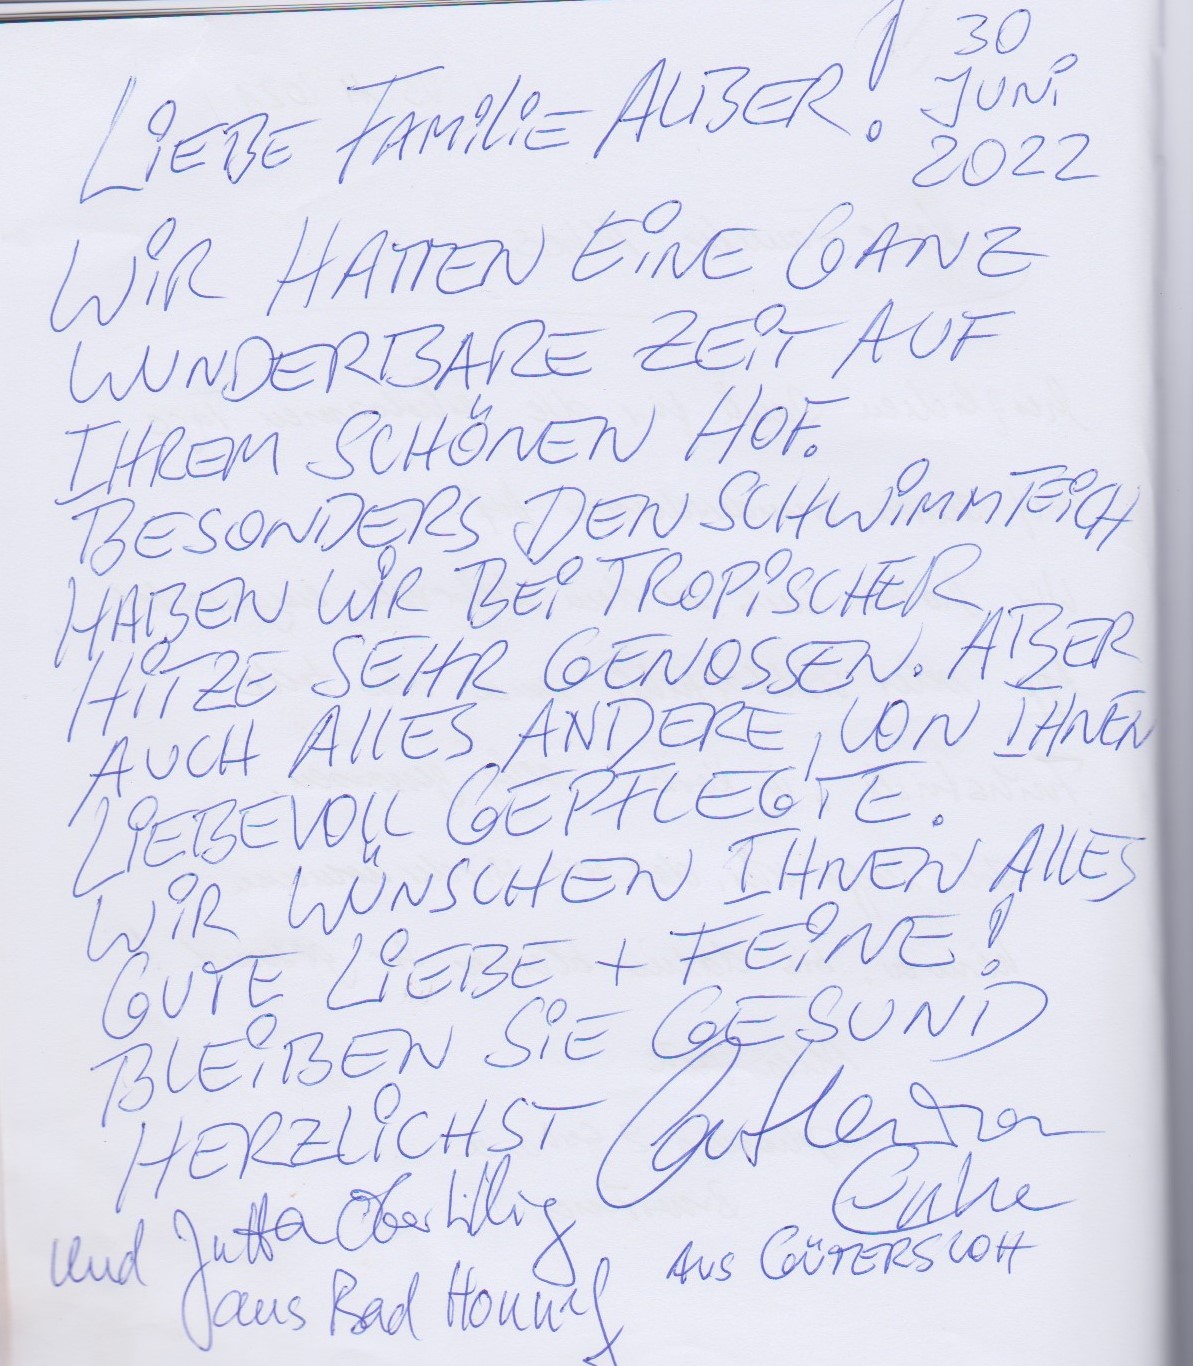 30
JUNI
2022
LIEBE FAMILIE ALBER!
WIR HATTEN EINE GANZ
WUNDERBARE ZEIT AUF
IHREM SCHÖNEN HOF.
BESONDERS DEN SCHWIMMTEICH
HABEN WIR BEI TROPISCHER
HITZE SEHR GENOSSEN. ABER
AUCH ALLES ANDERE, VON IHNEN
LIEBEVOLL GEPFLEGTE.
WIR WÜNSCHEN IHNEN ALLES
GUTE LIEBE + FEINE!
BLEIBEN SIE GESUND
HERZLICHST
und Jutta
AUS GÜTERSLOH
aus Bad Honnef